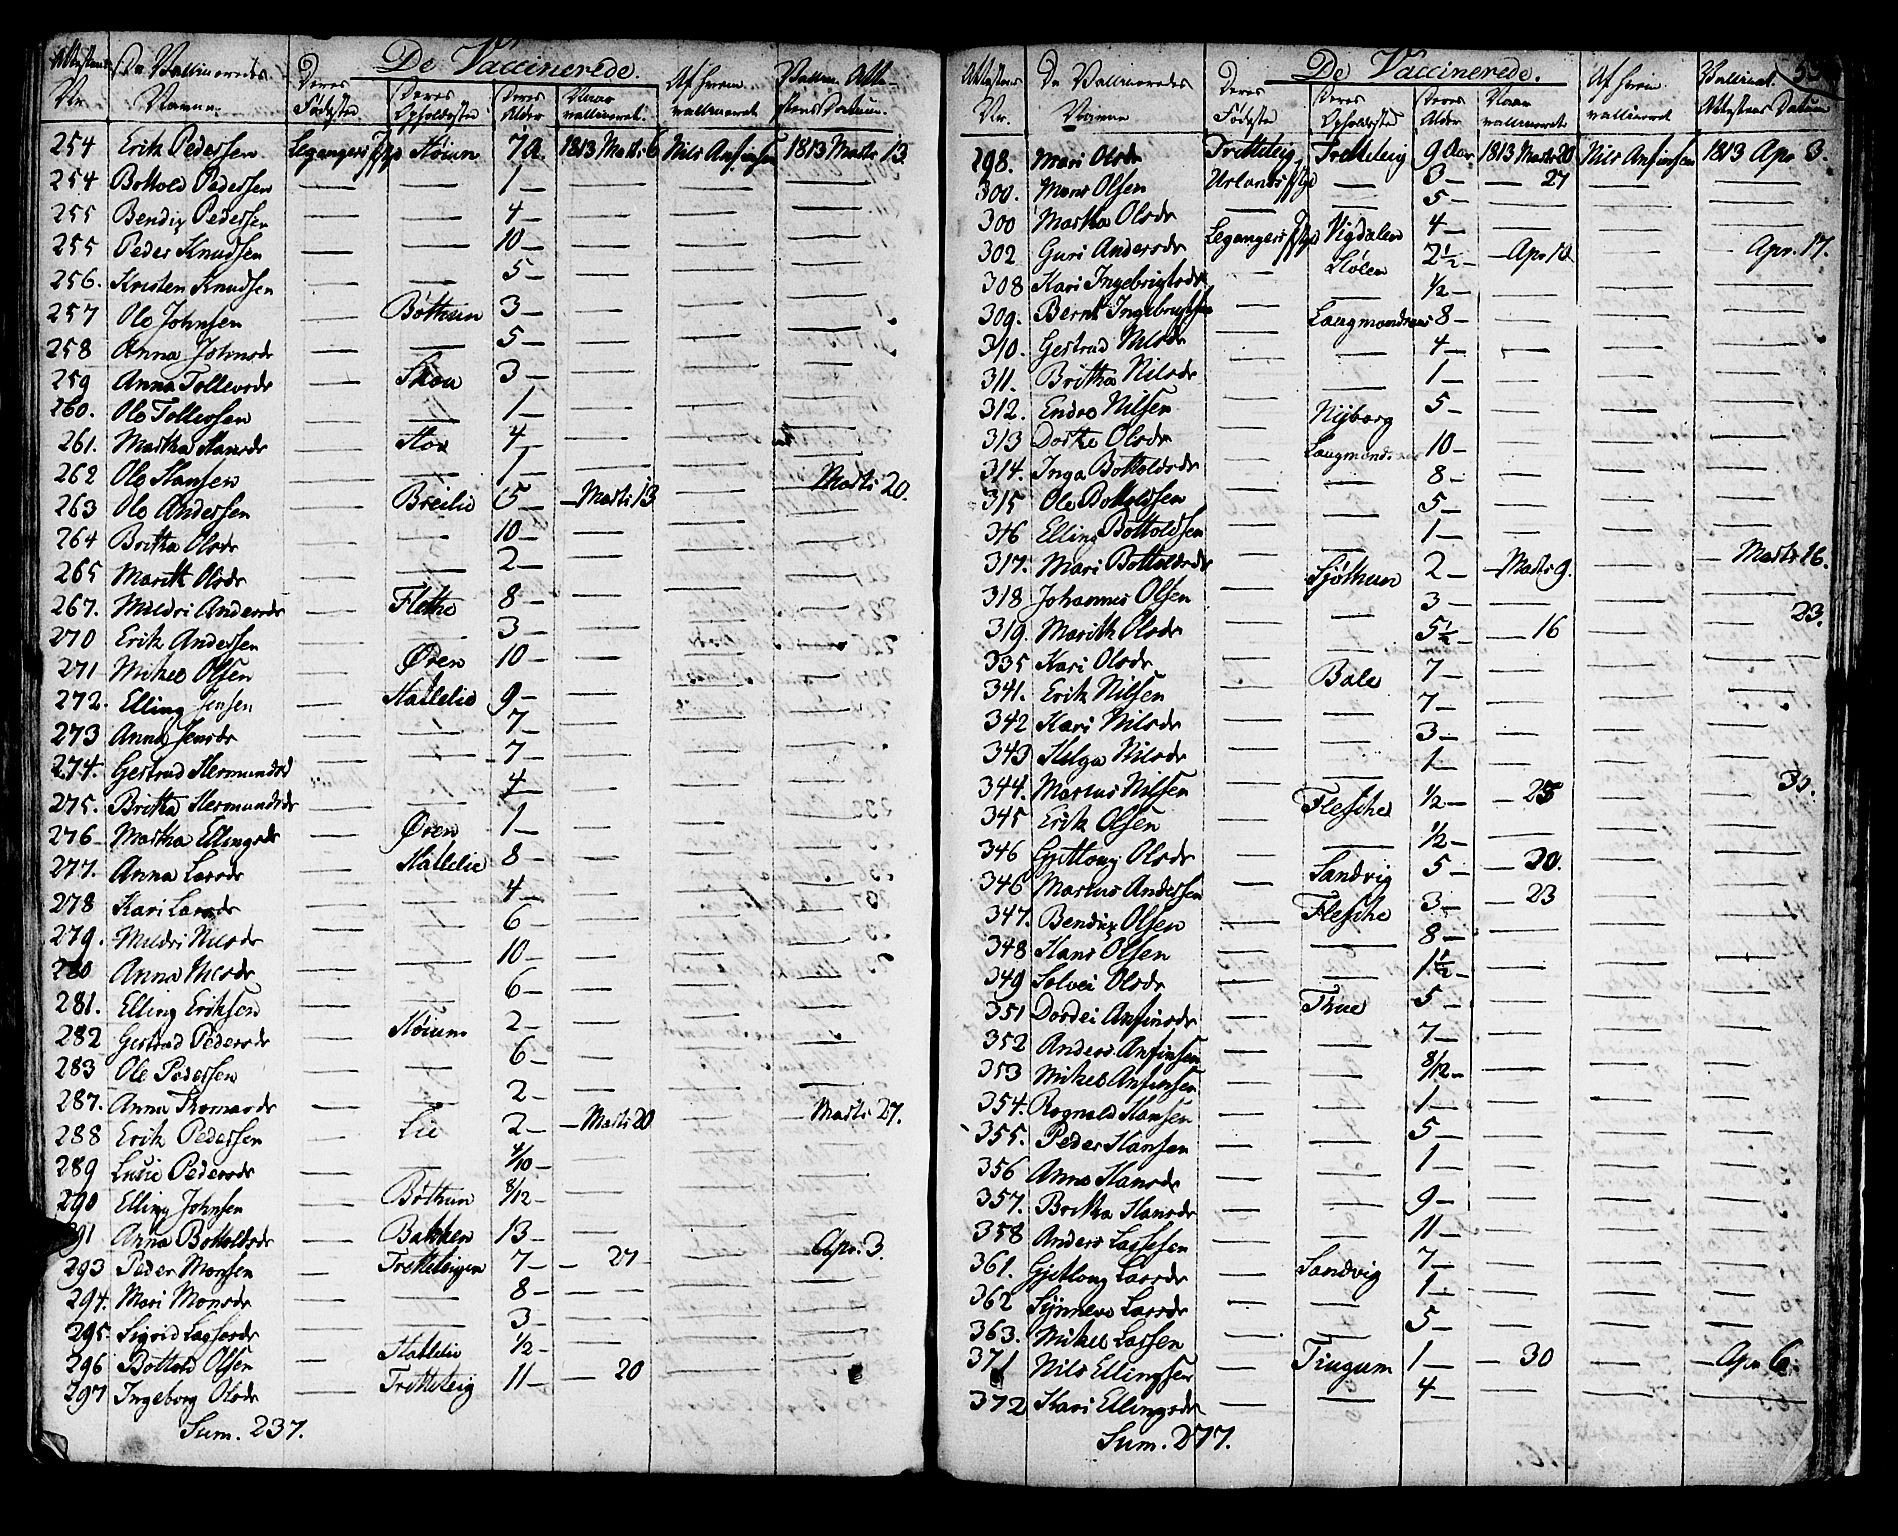 De Vaccinerede.
Attestens Nr. De Vaccineredes Navne. Deres Fødested Deres Opholdssted Deres Alder Naar vaccineret. Af hvem vaccineret Vaccin. Attestens Datum.
254 Erik Pedersen Leganger Høium 7 a. 1813 Marts 6 Nils Anfinsen 1813 Marts 13.
254 Bottold Pedersen — — 1 — — — —
255 Bendix Pedersen — — 4 — — — —
255 Peder Knudsen — — 10 — — — —
256. Kristen Knudsen — — 5 — — — —
257 Ole Johnsen — Bøthun 3 — — — —
258 Anna Johnsdr — — 5 — — — —
259 Anna Tollevsdr — Skou 3 — — — —
260. Ole Tollevsen — — 1 — — — —
261. Martha Hansdr — Hov 4 — — — —
262 Ole Hansen — — 1 — — — —
263 Ole Andersen — Breilie 5 — Marts 13 — Marts 20.
264 Britha Olsdr — — 10 — — — —
265 Marith Olsdr — — 2 — — — —
267. Mildri Andersdr — Flethe 8 — — — —
270 Erik Andersen — — 3 — — — —
271 Mikel Olsen — Øren 10 — — — —
272. Elling Jensen — Hallelie 9 — — — —
273 Anna Jensdr — — 7 — — — —
274. Gertrud Hermundsd — — 7 — — — —
275. Britha Hermundsdr — — 4 — — — —
276 Martha Ellingsdr — Øren 1 — — — —
277. Anna Larsdr — Hallelie 8 — — — —
278 Kari Larsdr — — 4 — — — —
279. Mildri Nilsdr — — 6 — — — —
280 Anna Nilsdr — — 10 — — — —
281. Elling Eriksen — — 6 — — — —
282 Gertrud Pedersdr — Høium 2 — — — —
283 Ole Pedersen — — 6 — — — —
287. Anna Thomasdr — — 2 — — — —
288 Erik Pedersen — Lie 2 — Marts 20 — Marts 27.
289 Lusie Pedersdr — — 4/10 — — — —
290 Elling Johnsen — Bøthun 8/12 — — — —
291 Anna Bottoldsdr — Bakken 13 — — — —
293 Peder Monsen — Fretteleigen 7 — 27 — Apr. 3.
294. Mari Monsdr — — 8 — — — —
295. Sigrid — — 3 — — — —
296 Bottold Olsen — Hallelie 1/2 — — — —
297 Ingeborg Olsdr — Fretteleig 11 — 20 — —
Sum. 237.
De Vaccinerede.
Attestens Nr. De Vaccineredes Navne Deres Fødested Deres Opholdssted Deres Alder Naar vaccineret Af hvem vaccineret Vaccinat. Attestens Datum
298. Mari Olsdr Fretteleig Fretteleig 9 Aar 1813 Marts 20 Nils Anfinsen 1813 Apr. 3.
300. Mons Olsen Urlands — 3 — 27 — —
300 Martha Olsdr — — 5 — — — —
302 Guri Andersdr Leganger Vigdalen 4 — — — —
308 Kari Ingebrigtsdr — Stølen 2 1/2 — Apr 10 — Apr. 17.
309. Bernt Ingebrigtsen — — 1/2 — — — —
310. Gertrud Nilsdr — Laugmandsnæs 8 — — — —
311. Britha Nilsdr — — 4 — — — —
312. Endre Nilsen — — 1 — — — —
313 Dorthe Olsdr — Nyborg 5 — — — —
314. Inga Bottoldsdr — 10 — — — —
315 Ole Bottoldsen — — 8 — — — —
316 Elling Bottoldsen — — 5 — — — —
317. Mari Bottoldsdr — — 1 — — — —
318 Johannes Olsen — Sjøthun 2 — Marts 9. — Marts 16.
319. Marith Olsdr — — 3 — — — —
335 Kari Olsdr — — 5 1/2 — 16 — 23.
341. Erik Nilsen — Bale 7 — — — —
342 Kari Nilsdr — — 7 — — — —
343 Helga Nilsdr — — 3 — — — —
344. Marcus Nilsen — — 1 — — — —
345 Erik Olsen — Flesche 1/2 — 25 — 30.
346 Gjetlong Olsdr — — 1/2 — — — —
346 Marcus Andersen — Sandvig 5 — 20. — —
347. Bendix Olsen — Flesche 3 — 23 — —
348 Hans Olsen — — 8 — — — —
349 Solvei Olsdr — — 1 1/2 — — — —
351 Dordei Anfinsdr — Thue 5 — — — —
352 Anders Anfinsen — — 7 — — — —
353 Mikel Anfinsen — — 8/12 — — — —
354. Rognald Hansen — — 1 — — — —
355. Peder Hansen — — 5 — — — —
356 Anna Hansdr — — 1 — — — —
357. Britha Hansdr — — 9 — — — —
358 Anders Larssen — — 11 — — — —
361. Gjetlong Larsdr — Sandvig 7 — — — —
362 Synneve Larsdr — — 1 — — — —
363. Mikel Larsen — — 5 — — — —
371 Nils Ellingsen — Tingum 1 — 30 — Apr. 6.
372 Kari Ellingsdr — — 4 — — — —
Sum. 277.